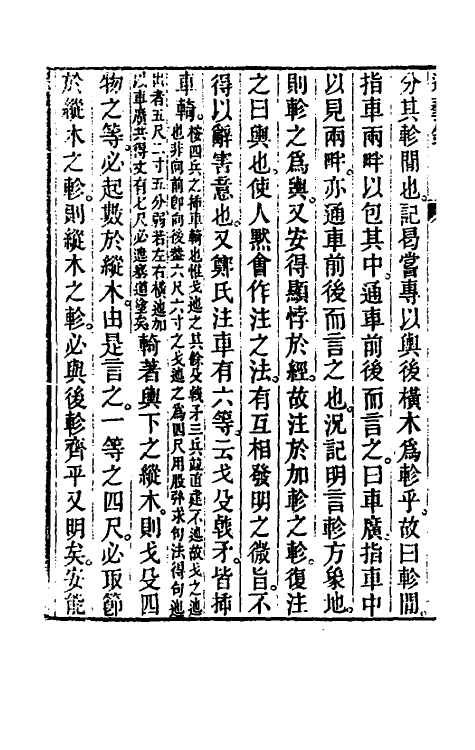 分其軫閒也記曷嘗專以輿後橫木爲軫乎故曰軫閒
指車兩畔以包其中通車前後而言之曰車廣指車中
以見兩畔亦通車前後而言之也況記明言軫方象地
則軫之爲輿又安得顯悖於經故注於加軫之軫復注
之曰輿也使人黙會作注之法有互相發明之微旨不
得以辭害意也又鄭氏注車有六等云戈殳戟矛皆揷
車輢按四兵之揷車輢也惟戈迆之其餘殳戟矛三兵竝直建不迆故戈之迆
也非向前卽向後蓋六尺六寸之戈迆之爲四尺用股弦求句法得句迆
出者五尺二寸五分弱若左右橫迆加
以車廣共得丈有七尺必進塞道塗矣輢著輿下之縱木則戈殳四
物之等必起數於縱木由是言之一等之四尺必取節
於縱木之軫則縱木之軫必與後軫齊平又明矣安能